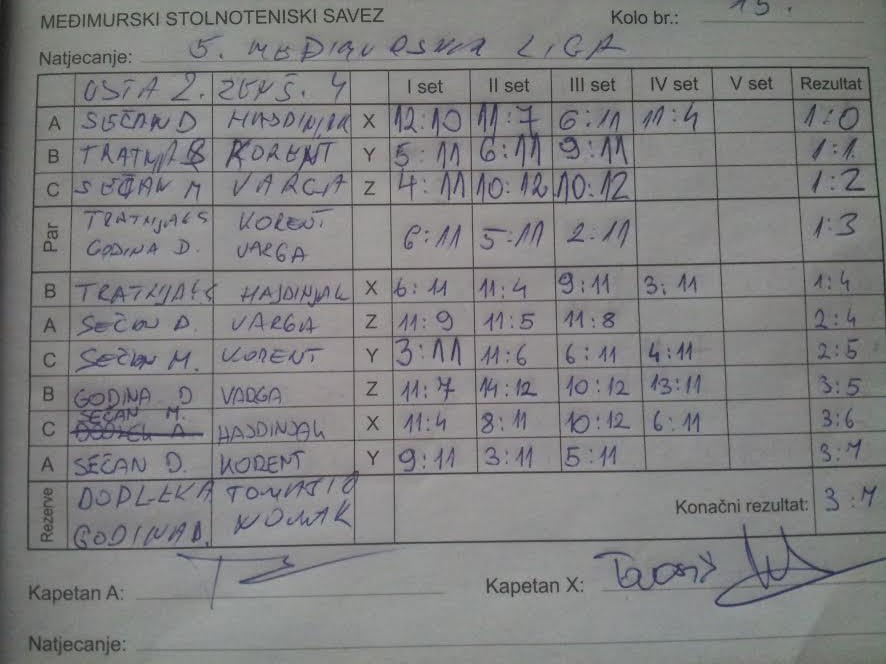 MEĐIMURSKI STOLNOTENISKI SAVEZ Kolo br.: 15.
Natjecanje: 5. LIGA
OSTA 2. ŽENŠ. 4 I set II set III set IV set V set Rezultat
A SEČAN D HAJDINJAK X 12:10 11:7 6:11 11:4 1:0
B TRATNJAK KORENT Y 5:11 6:11 9:11 1:1
C SEČAN M VARGA Z 4:11 10:12 10:12 1:2
Par TRATNJAK KORENT 6:11 5:11 2:11 1:3
GODINA D. VARGA
B TRATNJAK HAJDINJAK X 6:11 11:4 9:11 3:11 1:4
A SEČAN D. VARGA Z 11:9 11:5 11:8 2:4
C SEČAN M. KORENT Y 3:11 11:6 6:11 4:11 2:5
B GODINA D VARGA Z 11:7 14:12 10:12 13:11 3:5
C SEČAN M. HAJDINJAK X 11:4 8:11 10:12 6:11 3:6
A SEČAN D. KORENT Y 9:11 3:11 5:11 3:7
Rezerve DODLEKA
GODINA D. NOVAK Konačni rezultat: 3:7
Kapetan A: Kapetan X:
Natjecanje: